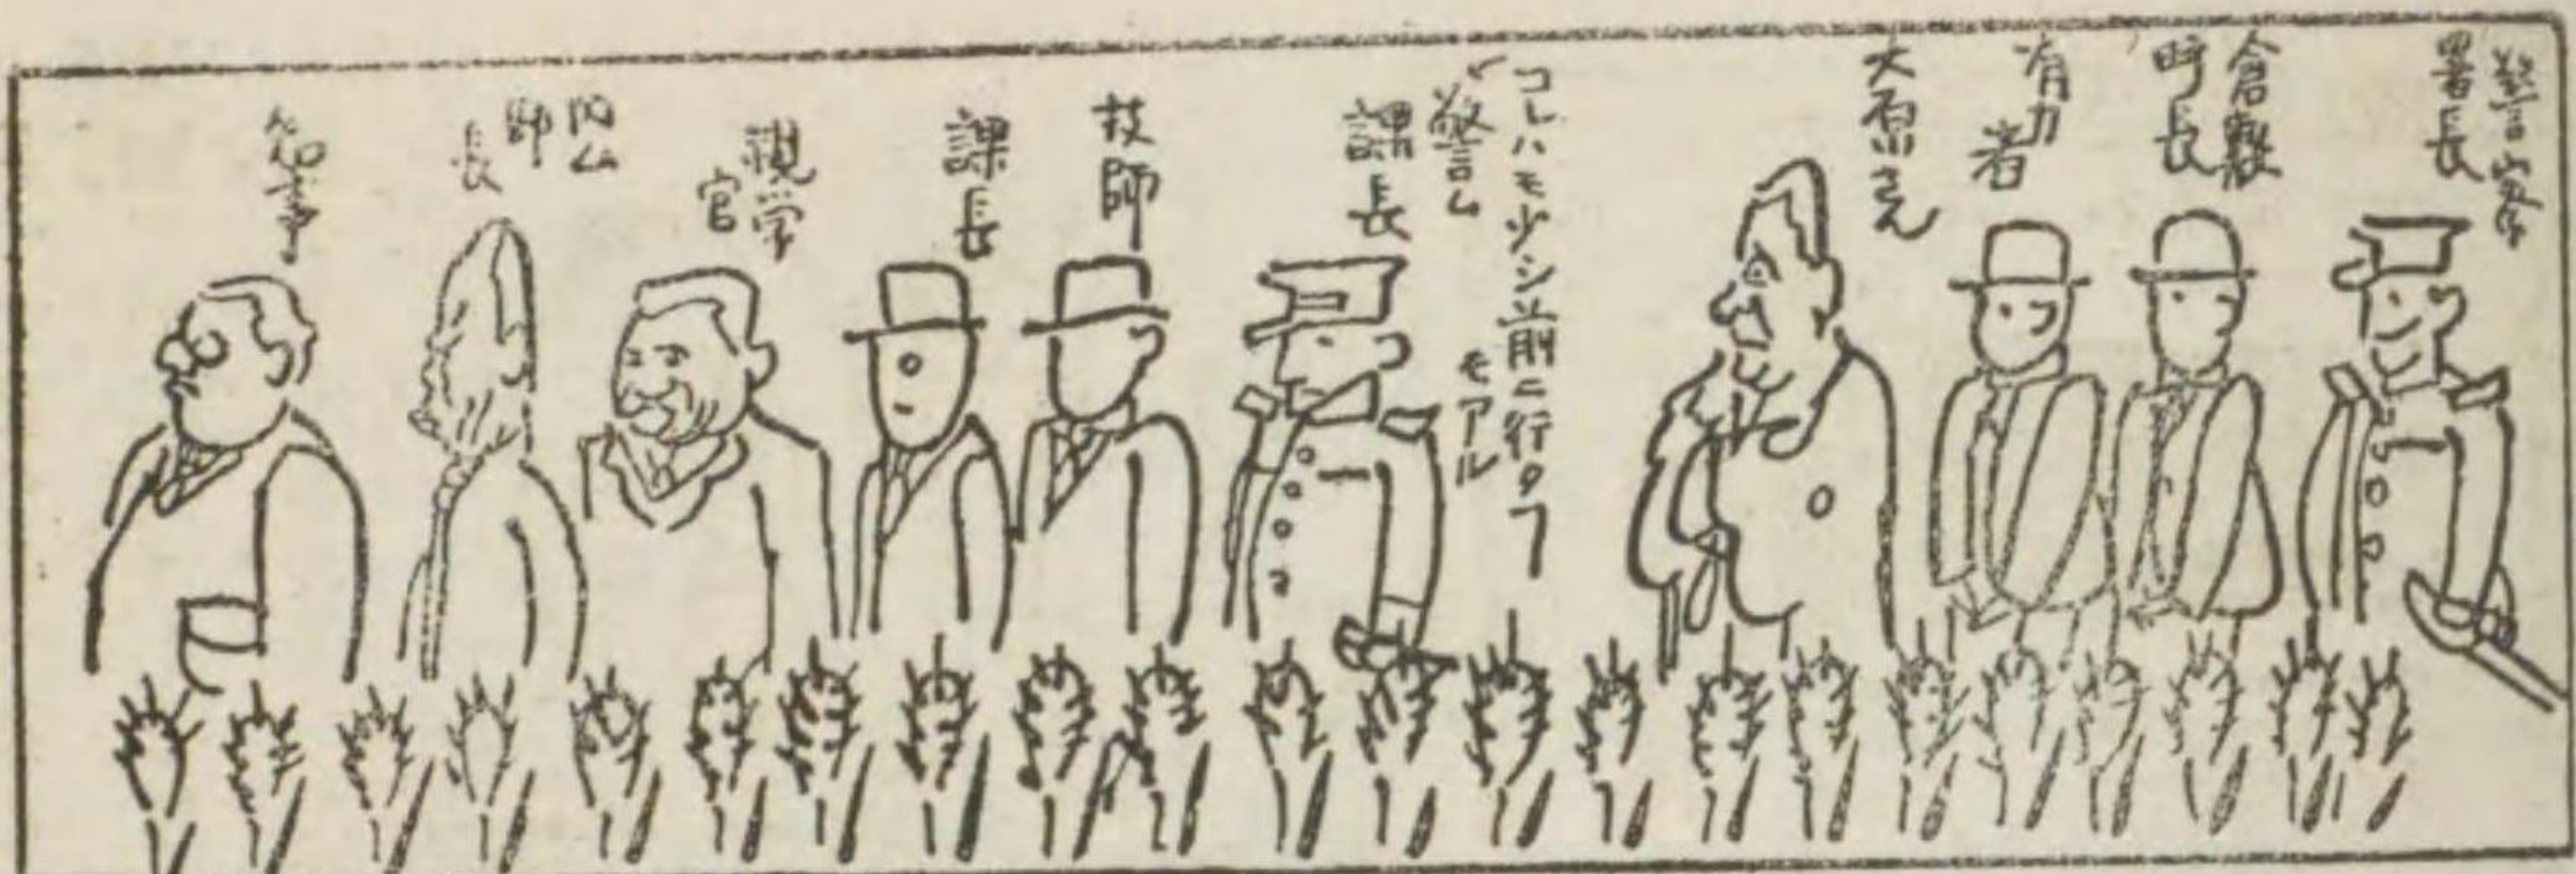 警察
署長
倉敷
町長
有力
者
大原さん
コレハモ少シ前ニ行クヿ
モアル
警ム
課長
技師
課長
視学
官
内ム
部
長
知事